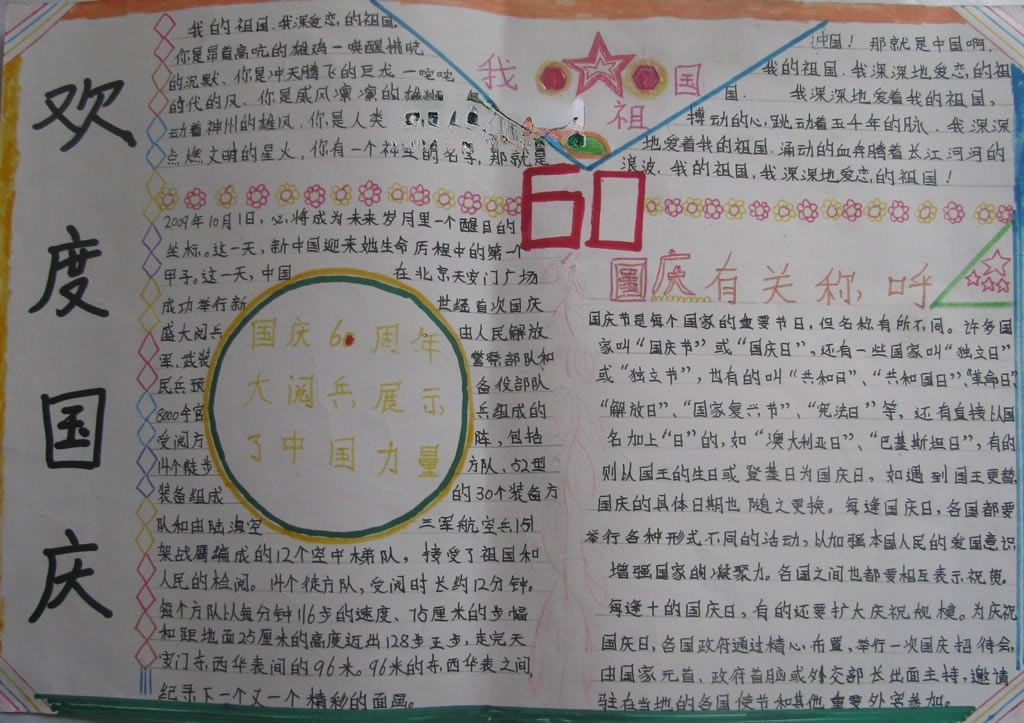 欢度国庆
我的祖国,我深爱恋,的祖国,
你是昂首高吭的雄鸡一唤醒拂晓
的沉默、你是冲天腾飞的巨龙一
的时代的风、你是威风凛凛的雄狮
动着神州的雄风,你是人类
点燃文明的星火,你有一个神圣的名字,那就是
我
祖
国
中国!那就是中国啊,
我的祖国,我深深地爱恋的祖
国. 我深深地爱着我的祖国,
搏动的心,跳动着五千年的脉、我深深
地爱着我的祖国,涌动的血奔腾着长江河河的
浪波,我的祖国,我深深地爱恋的祖国!
60
2009年10月1日,必将成为未来岁月里一个醒目的
坐标。这一天,新中国迎来她生命历程中的第一个
甲子。这一天,中国 在北京天安门广场
成功举行新 世纪首次国庆
盛大阅兵 由人民解放
军、武装 警察部队和
民兵预 备役部队
8000余官 兵组成的
受阅方 阵,包括
14个徒步 方队、52型
装备组成 的30个装备方
队和由陆海空 三军航空兵151
架战鹰编成的12个空中梯队,接受了祖国和
人民的检阅。14个徒方队,受阅时长约12分钟。
每个方队以每分钟116步的速度、75厘米的步幅
和距地面25厘米的高度迈出128步正步,走完天
安门东,西华表间的96米。96米的东,西华表之间,
纪录下一个又一个精彩的面画。
国庆60周年
大阅兵展示
了中国力量
国庆有关称呼
国庆节是每个国家的重要节日,但名称有所不同。许多国
家叫“国庆节”或“国庆日”,还有一些国家叫“独立日”
或“独立节”,也有的叫“共和日”、“共和国日”、“革命日”、
“解放日”、“国家复兴节”、“宪法日”等,还有直接以国
名加上“日”的,如“澳大利亚日”、“巴基斯坦日”,有的
则以国王的生日或登基日为国庆日,如遇到国王更替,
国庆的具体日期也随之更换。每逢国庆日,各国都要
举行各种形式不同的活动,以加强本国人民的爱国意识
增强国家的凝聚力。各国之间也都要相互表示祝贺.
每逢十的国庆日,有的还要扩大庆祝规模。为庆祝
国庆日,各国政府通过精心布置,举行一次国庆招待会,
由国家元首、政府首脑或外交部长出面主持,邀请
驻在当地的各国使节和其他重要外宾参加。